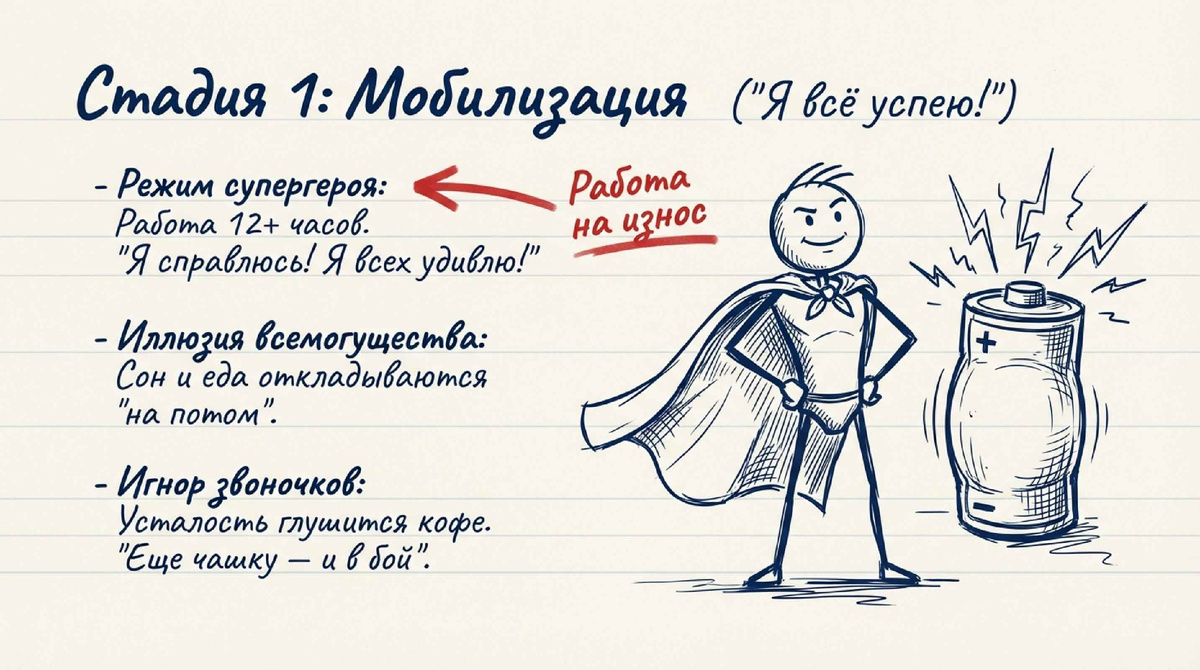 Стадия 1: Мобилизация ("Я всё успею!")
- Режим супергероя:
Работа 12+ часов.
"Я справлюсь! Я всех удивлю!"
Работа
на износ
- Иллюзия всемогущества:
Сон и еда откладываются
"на потом".
- Игнор звоночков:
Усталость глушится кофе.
"Еще чашку — и в бой".
+
-